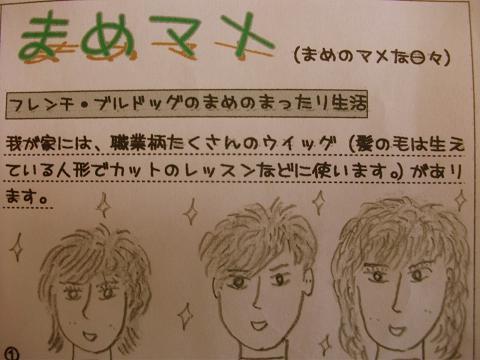 まめマメ
(まめのマメな日々)
フレンチ・ブルドッグのまめのまったり生活
我が家には、職業柄たくさんのウイッグ（髪の毛は生え
ている人形でカットのレッスンなどに使います。）があり
ます。
①